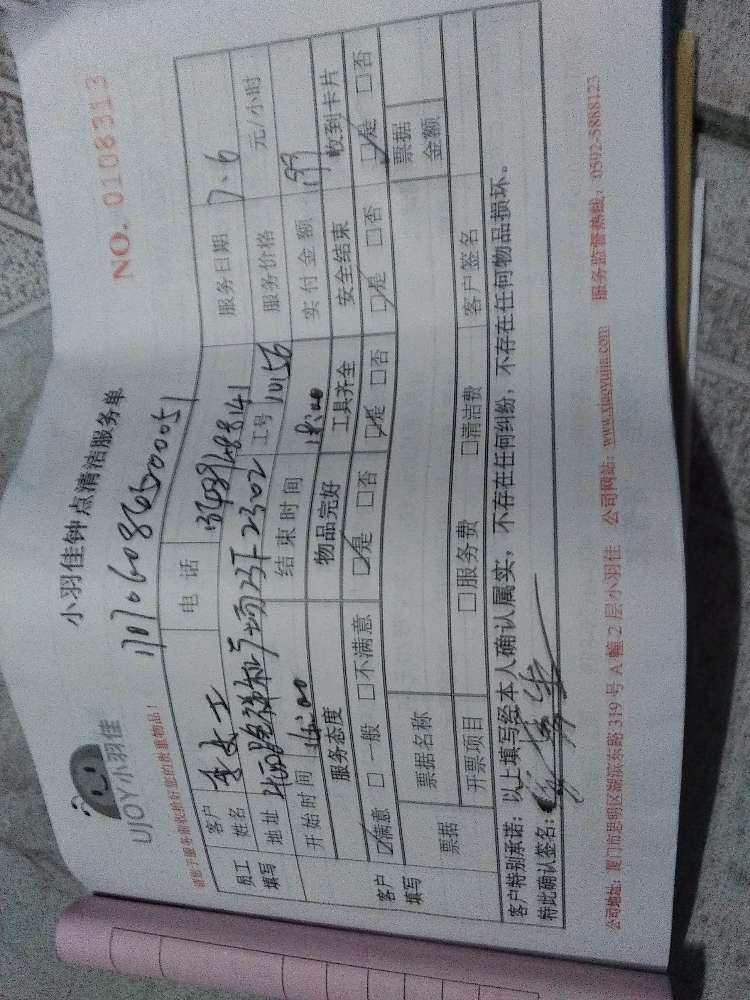 UJOY小羽佳
小羽佳钟点清洁服务单
NO. 0108313
请您于服务前收拾好您的贵重物品！
1707060865000051
员工填写
客户姓名 李女士 电话 服务日期 7、6
地址 23F 2302 工号 10156 服务价格 元/小时
开始时间 结束时间 18:00 实付金额 199
客户填写
服务态度 物品完好 工具齐全 安全结束 收到卡片
☑满意 □一般 □不满意 ☑是 □否 ☑是 □否 ☑是 □否 ☑是 □否
票据 票据名称 票据金额
开票项目 □服务费 □清洁费 客户签名
客户特别承诺：以上填写经本人确认属实，不存在任何纠纷，不存在任何物品损坏。
特此确认签名：
公司地址：厦门市思明区湖滨东路 319 号 A 幢 2 层小羽佳 公司网站：www.xiaoyujia.com 服务监督热线：0592-5888123